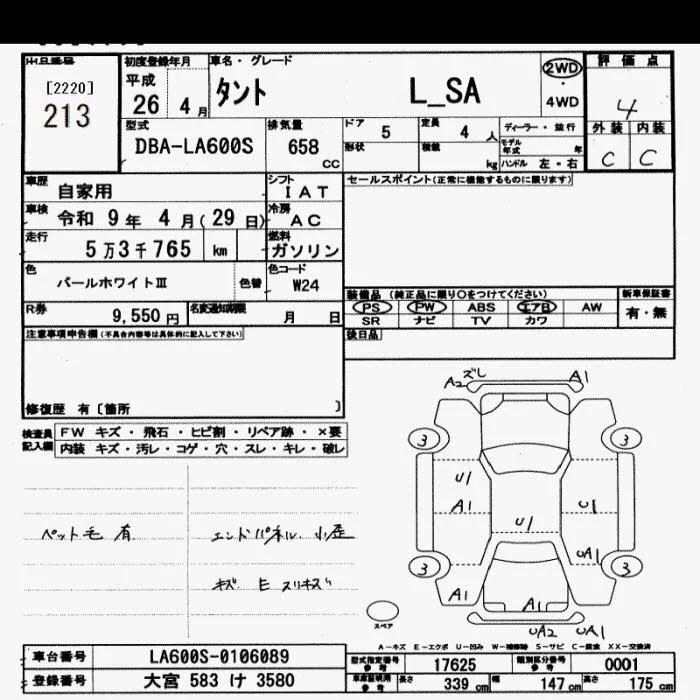 出品番号
[2220]
213
初度登録年月
平成
26 4月
車名・グレード
タント L_SA
2WD
・
4WD
評価点
4
外装 内装
C C
型式
DBA-LA600S
排気量
658
CC
ドア 5
定員 4 人
形状
積載 kg
ディーラー・並行
モデル年式 年
ハンドル 左・右
車歴
自家用
シフト
IAT
車検
令和 9年 4月(29日)
冷房
AC
走行
5万3千765 km
燃料
ガソリン
色
パールホワイトⅢ
色替
色コード
W24
R券
9,550円
名変通知期限
月 日
セールスポイント(正常に機能するものに限ります)
装備品 (純正品に限り○をつけてください)
PS PW ABS エアB AW
SR ナビ TV カワ
新車保証書
有・無
後日品
注意事項申告欄(不具合内容等は具体的に記入して下さい)
修復歴 有〔箇所 〕
検査員
記入欄
FW キズ・飛石・ヒビ割・リペア跡・×要
内装 キズ・汚レ・コゲ・穴・スレ・キレ・破レ
ペット毛 有
エンドパネル 小歪
キズ E スリキズ
A2 ズレ A1
3 3
U1
A1
U1
U1
UA1
3 3
A1
A1
UA2 UA1
スペア
A-キズ E-エクボ U-凹み W-補修跡 S-サビ C-腐食 XX-交換済
車台番号 LA600S-0106089
登録番号 大宮 583 け 3580
型式指定番号
参考
17625
類別区分番号
参考
0001
車庫証明用
参考
長さ 339 cm
幅 147 cm
高さ 175 cm